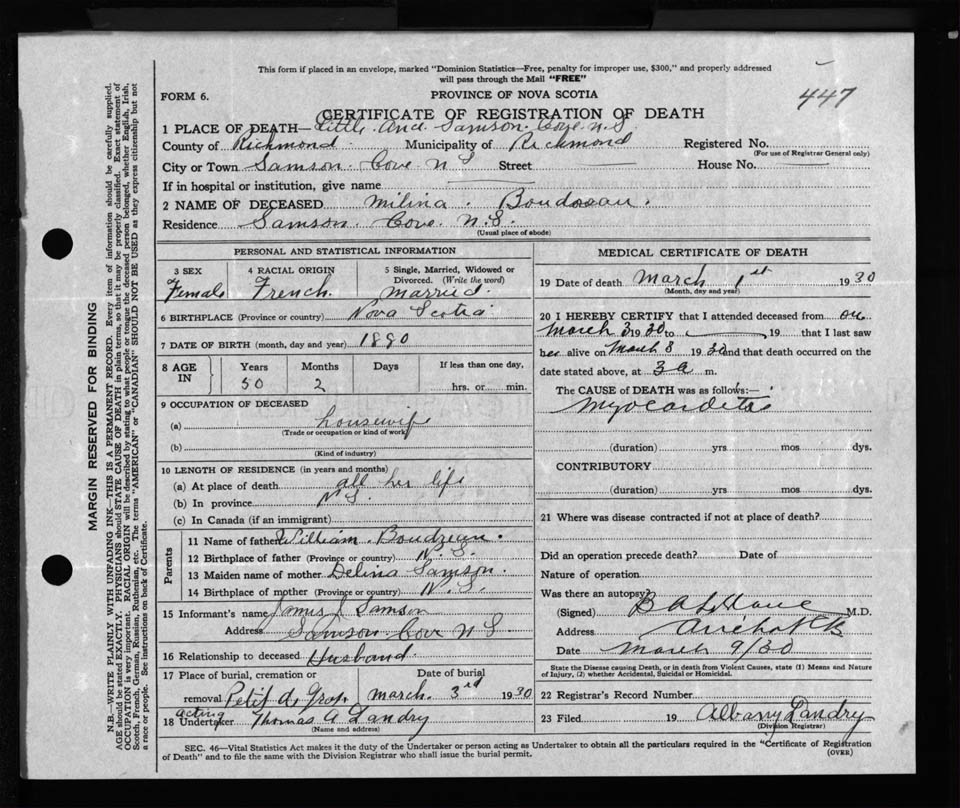 This form if placed in an envelope, marked "Dominion Statistics—Free, penalty for improper use, $300," and properly addressed
will pass through the Mail "FREE"
447
FORM 6.
PROVINCE OF NOVA SCOTIA
CERTIFICATE OF REGISTRATION OF DEATH
1 PLACE OF DEATH—Little And Samson Cove N.S
County of Richmond Municipality of Richmond Registered No.
(For use of Registrar General only)
City or Town Samson Cove N S Street House No.
If in hospital or institution, give name
2 NAME OF DECEASED Milina Boudosau.
Residence Samson Cove N.S.
(Usual place of abode)
PERSONAL AND STATISTICAL INFORMATION
3 SEX 4 RACIAL ORIGIN 5 Single, Married, Widowed or
Divorced. (Write the word)
Female French. Married.
6 BIRTHPLACE (Province or country) Nova Scotia
7 DATE OF BIRTH (month, day and year) 1890
8 AGE IN Years Months Days If less than one day,
50 2 hrs. or min.
9 OCCUPATION OF DECEASED
(a) housewife
(Trade or occupation or kind of work)
(b)
(Kind of industry)
10 LENGTH OF RESIDENCE (in years and months)
(a) At place of death all her life
(b) In province N S.
(c) In Canada (if an immigrant)
Parents
11 Name of father William Boudreau.
12 Birthplace of father (Province or country) N. S.
13 Maiden name of mother Delina Samson.
14 Birthplace of mother (Province or country) N. S.
15 Informant's name James J Samson
Address Samson Cove N S
16 Relationship to deceased Husband
17 Place of burial, cremation or Date of burial
removal Petit d, Grat. March. 3rd 1930
acting
18 Undertaker Thomas A Landry
(Name and address)
MEDICAL CERTIFICATE OF DEATH
19 Date of death March 1st 1930
(Month, day and year)
20 I HEREBY CERTIFY that I attended deceased from on
March 3 1930 to 19 that I last saw
her alive on March 8 1930 and that death occurred on the
date stated above, at 3 a m.
The CAUSE of DEATH was as follows:—
Myocarditis
(duration) yrs mos dys.
CONTRIBUTORY
(duration) yrs mos dys.
21 Where was disease contracted if not at place of death?
Did an operation precede death? Date of
Nature of operation
Was there an autopsy
(Signed) B A LeBlanc M.D.
Address Arichat
Date March 9/30
State the Disease causing Death, or in death from Violent Causes, state (1) Means and Nature
of Injury, (2) whether Accidental, Suicidal or Homicidal.
22 Registrar's Record Number
23 Filed 19 Albany Landry
(Division Registrar)
SEC. 46—Vital Statistics Act makes it the duty of the Undertaker or person acting as Undertaker to obtain all the particulars required in the "Certificate of Registration
of Death" and to file the same with the Division Registrar who shall issue the burial permit.
(OVER)
MARGIN RESERVED FOR BINDING
N.B.—WRITE PLAINLY WITH UNFADING INK—THIS IS A PERMANENT RECORD. Every item of information should be carefully supplied.
AGE should be stated EXACTLY. PHYSICIANS should STATE CAUSE OF DEATH in plain terms, so that it may be properly classified. Exact statement of
OCCUPATION is very important. RACIAL ORIGIN will be described by stating to what people or tongue the deceased person belonged, whether English, Irish,
Scotch, French, German, Russian, Ruthenian, etc. The terms "AMERICAN" or "CANADIAN" SHOULD NOT BE USED as they express citizenship but not
a race or people. See instructions on back of Certificate.